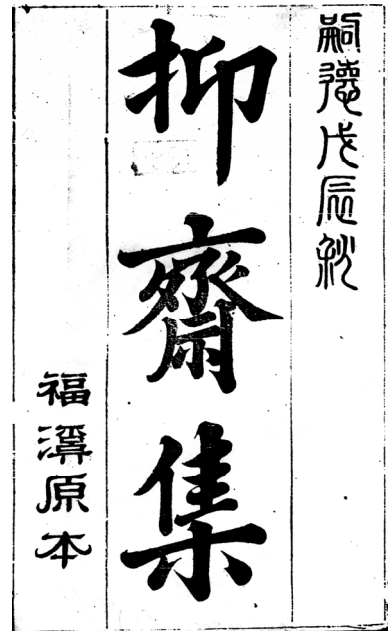 嗣德戊辰秋
抑齋集
福溪原本